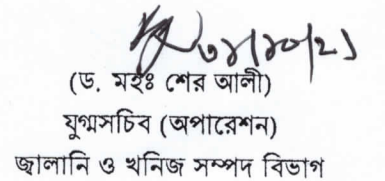 ৩১/১০/২১
(ড. মহঃ শের আলী)
যুগ্মসচিব (অপারেশন)
জ্বালানি ও খনিজ সম্পদ বিভাগ